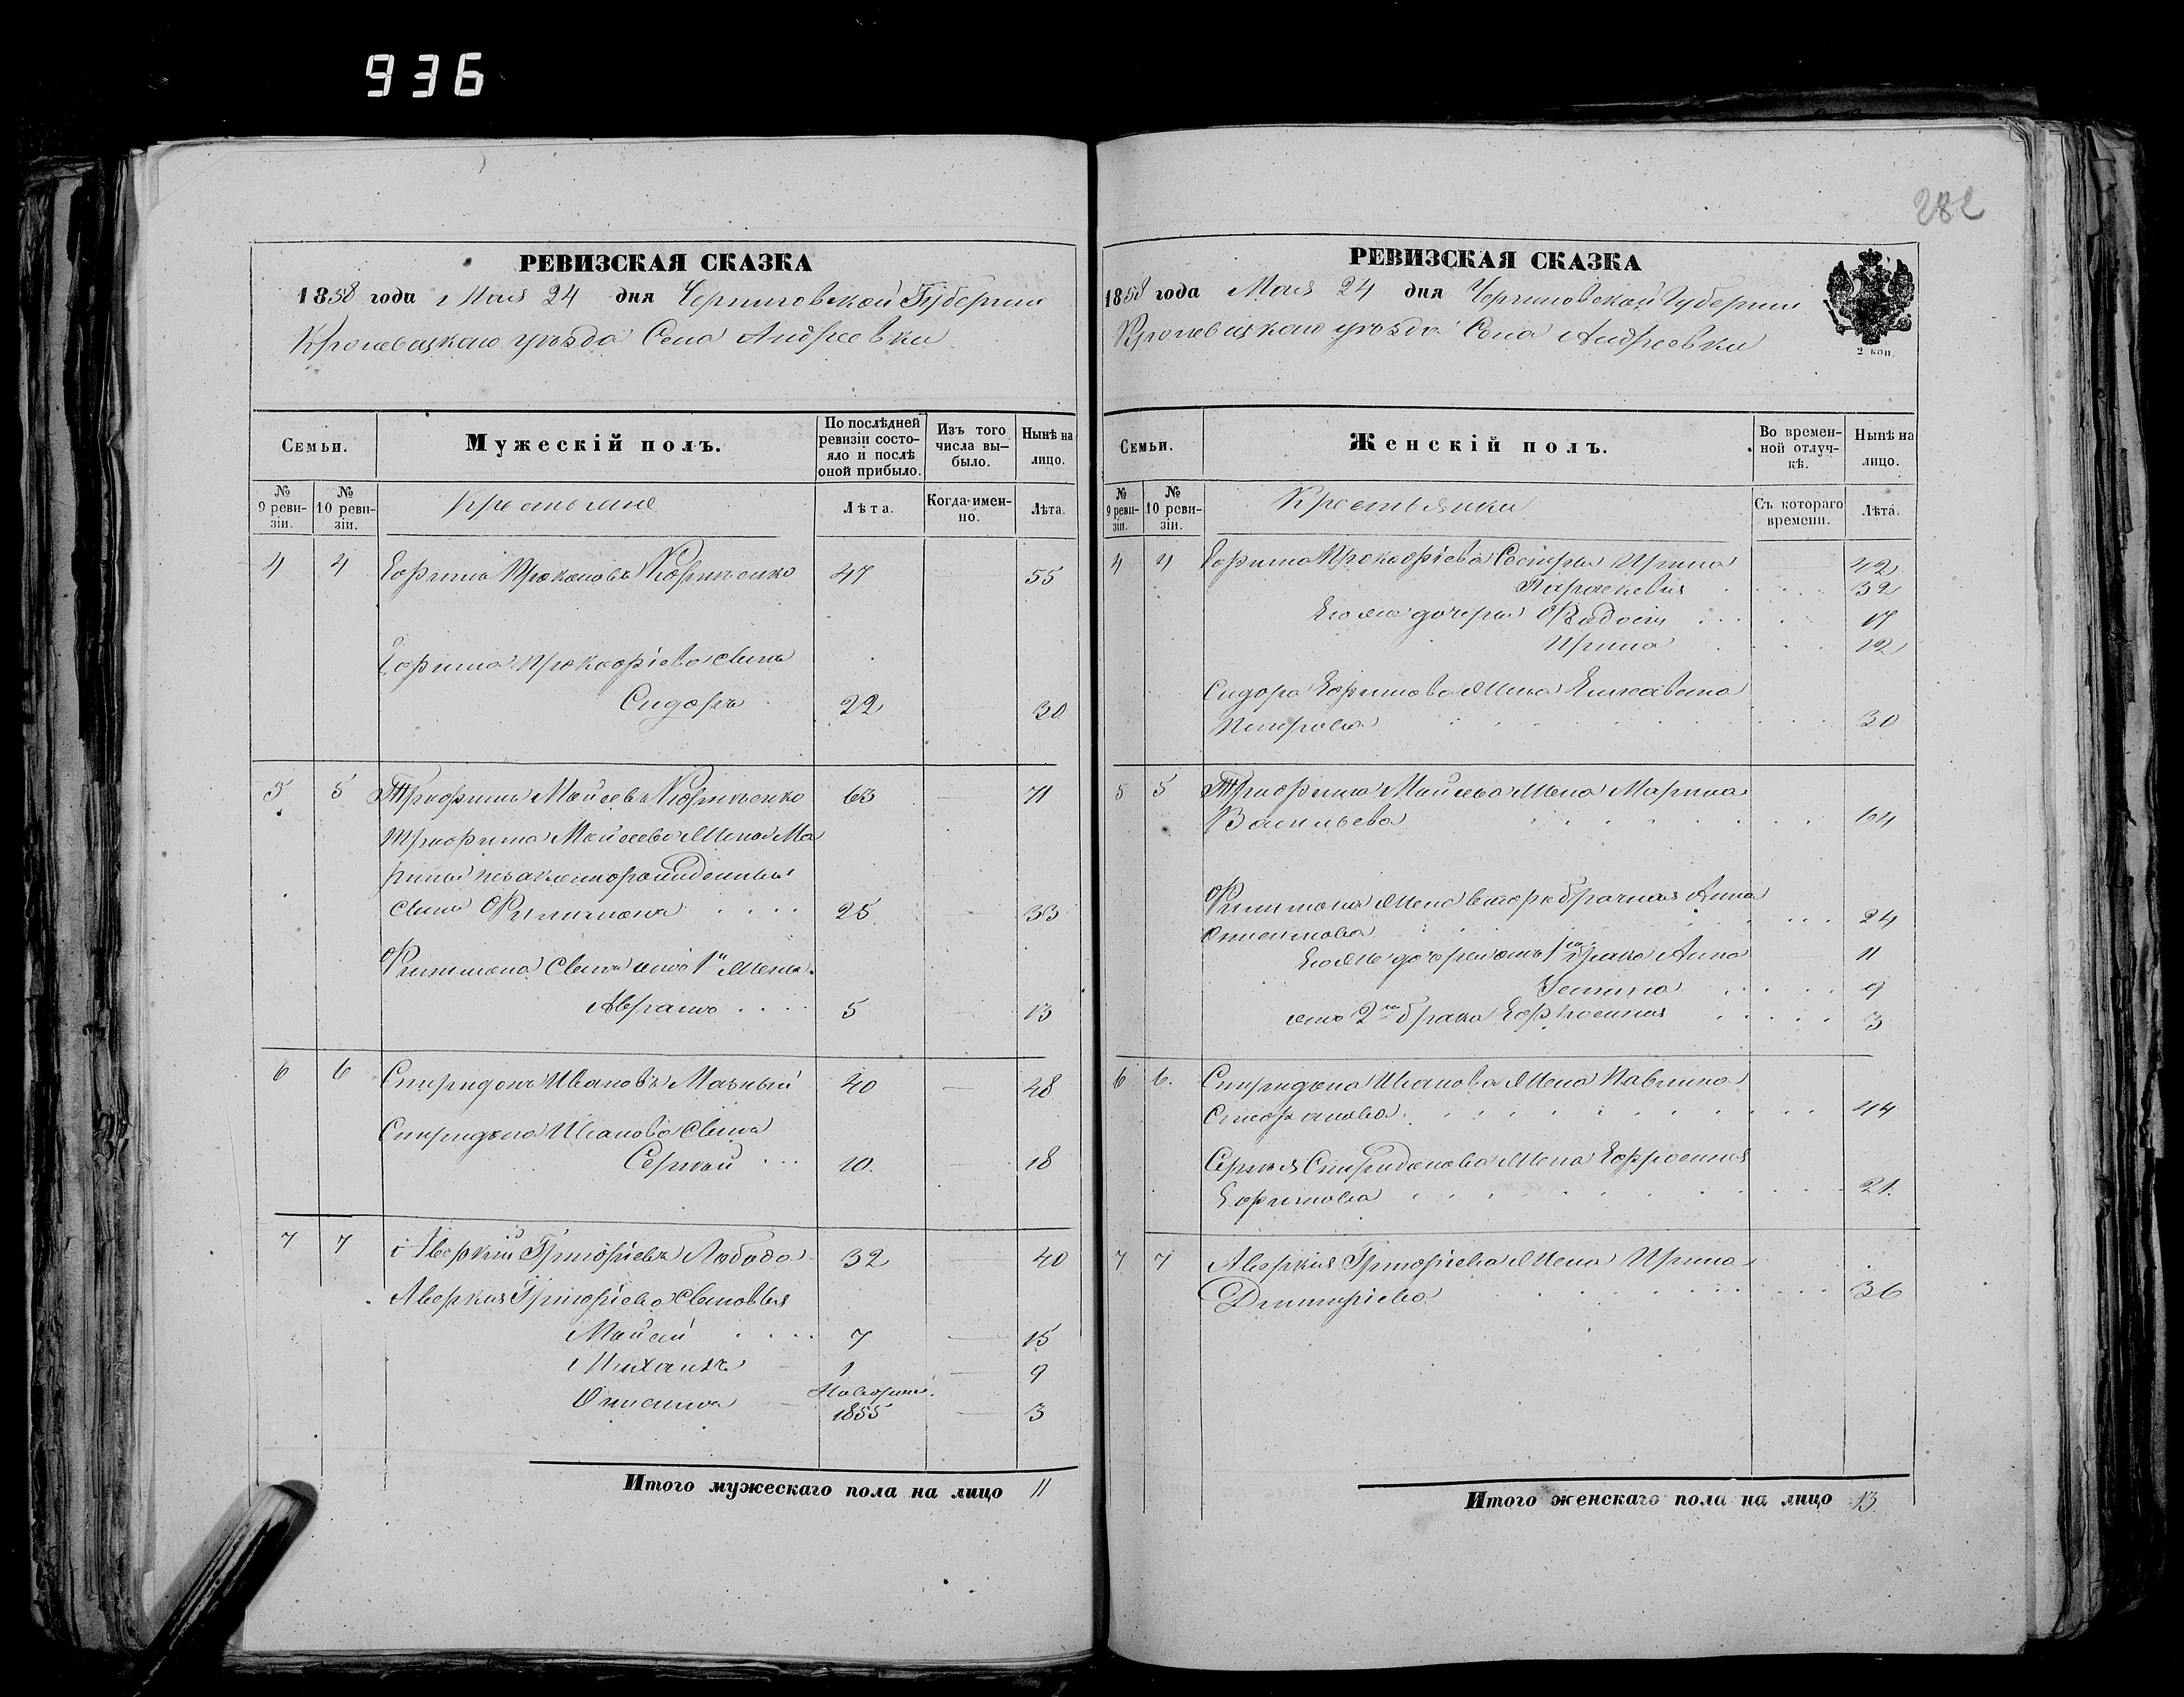 936
282
РЕВИЗСКАЯ СКАЗКА
1858 года Мая 24 дня Черниговской Губернии
Кролевецкаго уѣзда Села Андреевки
Семьи.
Мужескій полъ.
По послѣдней ревизіи состо-
яло и послѣ
оной прибыло.
Изъ того
числа вы-
было.
Нынѣ на
лицо.
№
9 реви-
зіи.
№
10 реви-
зіи.
Крестьяне
Лѣта.
Когда имен-
но.
Лѣта.
4 4 Ефимъ Прокоповъ 47 — 55
Ефима Прокофіева сынъ
Сидоръ 22 30
5 5 Трифонъ Мойсеевъ 63 — 71
Трифона Мойсеева жены Ма
рины незаконорожденный
сынъ Филимонъ 25 — 33
Филимона сынъ отъ 1й жены
Аврамъ 5 13
6 6 Спиридонъ Ивановъ Мазный 40 — 48
Спиридона Иванова сынъ
Сергей 10. 18
7 7 Аверкій Григоріевъ Лобода 32 — 40
Аверкія Григоріева сыновья
Мойсей 7 — 15
Михаилъ 1 — 9
Онисимъ Новорож. 1855 — 3
Итого мужескаго пола на лицо 11
РЕВИЗСКАЯ СКАЗКА
1858 года Мая 24 дня Черниговской Губернии
Кролевецкаго уѣзда Села Андреевки
2 коп.
Семьи.
Женскій полъ.
Во времен-
ной отлуч-
кѣ.
Нынѣ на
лицо.
№
9 реви-
зіи.
№
10 реви-
зіи.
Крестьянки
Съ котораго
времени.
Лѣта.
4 4 Ефима Прокофіева Сестры Ирина 42
Параскевія 32
Его же дочери Феодосія 17
Ирина 12
Сидора Ефимова жена Елисавета
Петрова 30
5 5 Трифона Мойсеева жена Марина
Васильева 64
Филимона жена второбрачная Анна
24
Его же дочери отъ 1го брака Анна 11
9
отъ 2го брака Ефросинія 3
6 6. Спиридона Иванова жена Павлина
Стефанова 44
Сергея Спиридонова жена Ефросинія
Ефимова 21.
7 7 Аверкія Григоріева жена Ирина
Дмитріева 36
Итого женскаго пола на лицо 13